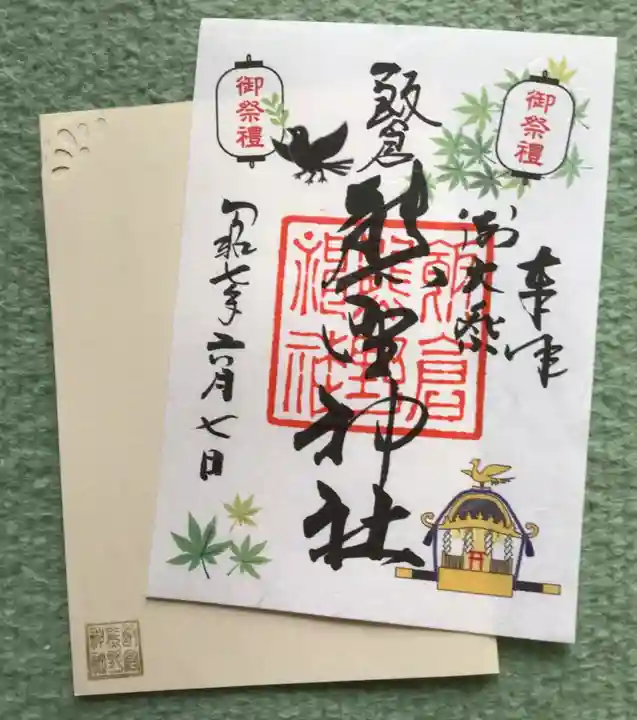 御祭禮
御祭禮
奉拝
御大祭
飯倉
熊野神社
飯倉
熊野
神社
令和七年六月七日
飯倉
熊野
神社